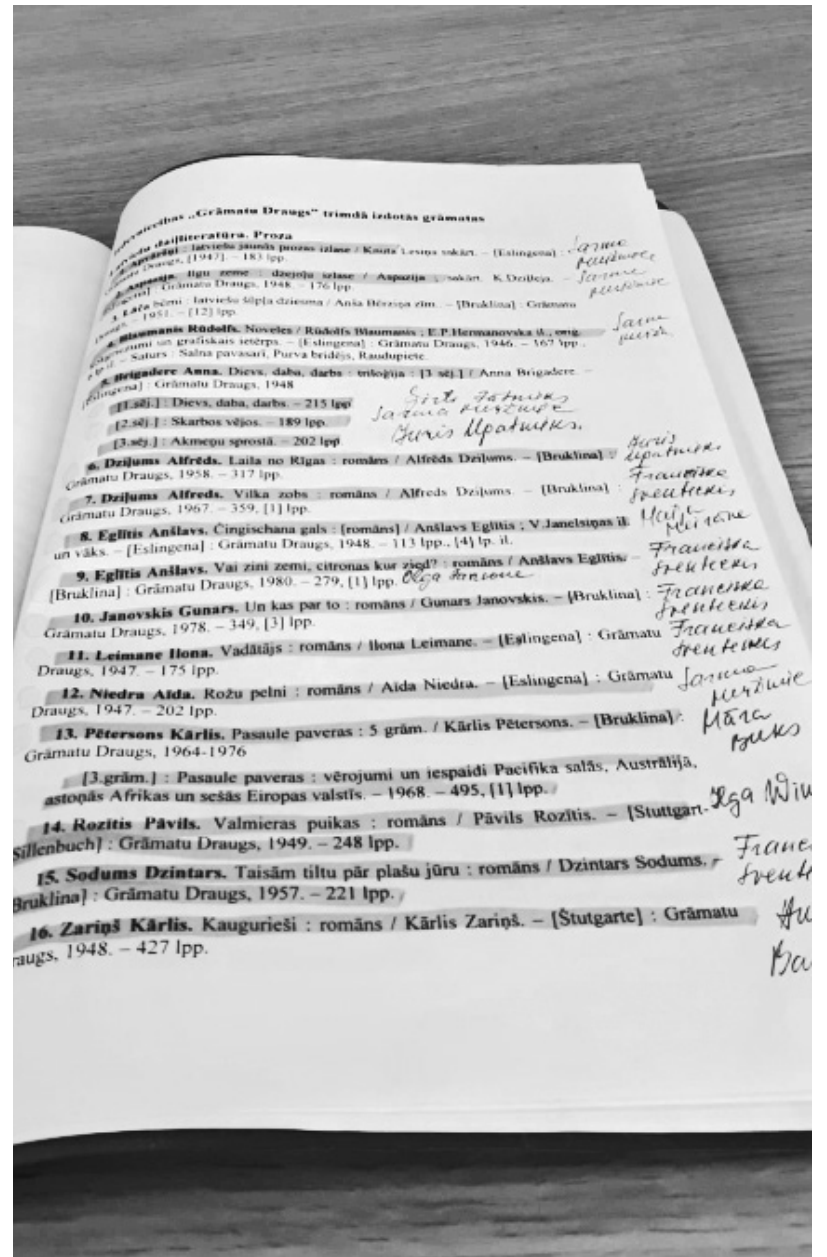 izdevniecības „Grāmatu Draugs” trimdā izdotās grāmatas
Latviešu daiļliteratūra. Proza
1. Apvāršņi : latviešu jaunās prozas izlase / Knuta Lesiņa sakārt. – [Eslingena] : Sarma
Grāmatu Draugs, [1947]. – 183 lpp.
2. Aspazija. Ilgu zeme : dzejoļu izlase / Aspazija ; sakārt. K.Dziļleja. – Sarma
: Grāmatu Draugs, 1948. – 176 lpp.
3. Lāča bērni : latviešu šūpļa dziesma / Anša Bērziņa zīm. – [Bruklina] : Grāmatu
– 1951. – [12] lpp.
4. Blaumanis Rūdolfs. Noveles / Rūdolfs Blaumanis ; E.P.Hermanovska il., orig. Sarma
un grafiskais ietērps. – [Eslingena] : Grāmatu Draugs, 1946. – 167 lpp.,
– Saturs : Salna pavasarī, Purva bridējs, Raudupiete.
5. Brigadere Anna. Dievs, daba, darbs : triloģija : [3 sēj.] / Anna Brigadere. –
[Eslingena] : Grāmatu Draugs, 1948
[1.sēj.] : Dievs, daba, darbs. – 215 lpp.
[2.sēj.] : Skarbos vējos. – 189 lpp. Sarma
[3.sēj.] : Akmeņu sprostā. – 202 lpp. Juris Upatnieks.
6. Dziļums Alfrēds. Laila no Rīgas : romāns / Alfrēds Dziļums. – [Bruklina] : Juris
Grāmatu Draugs, 1958. – 317 lpp. Upatnieks
7. Dziļums Alfreds. Vilka zobs : romāns / Alfreds Dziļums. – [Bruklina] : Franciska
Grāmatu Draugs, 1967. – 359, [1] lpp. Sventeckis
8. Eglītis Anšlavs. Čingischana gals : [romāns] / Anšlavs Eglītis ; V.Janelsiņas il. Maija
un vāks. – [Eslingena] : Grāmatu Draugs, 1948. – 113 lpp., [4] lp. il.
9. Eglītis Anšlavs. Vai zini zemi, citronas kur zied? : romāns / Anšlavs Eglītis. – Franciska
[Bruklina] : Grāmatu Draugs, 1980. – 279, [1] lpp. Olga Sventeckis
10. Janovskis Gunars. Un kas par to : romāns / Gunars Janovskis. – [Bruklina] : Franciska
Grāmatu Draugs, 1978. – 349, [3] lpp. Sventeckis
11. Leimane Ilona. Vadātājs : romāns / Ilona Leimane. – [Eslingena] : Grāmatu Franciska
Draugs, 1947. – 175 lpp. Sventeckis
12. Niedra Aīda. Rožu pelni : romāns / Aīda Niedra. – [Eslingena] : Grāmatu Sarma
Draugs, 1947. – 202 lpp.
13. Pētersons Kārlis. Pasaule paveras : 5 grām. / Kārlis Pētersons. – [Bruklina] : Māra
Grāmatu Draugs, 1964-1976 Buks
[3.grām.] : Pasaule paveras : vērojumi un iespaidi Pacifika salās, Austrālijā,
astoņās Āfrikas un sešās Eiropas valstīs. – 1968. – 495, [1] lpp.
14. Rozītis Pāvils. Valmieras puikas : romāns / Pāvils Rozītis. – [Stuttgart- Ilga
Sillenbuch] : Grāmatu Draugs, 1949. – 248 lpp.
15. Sodums Dzintars. Taisām tiltu pār plašu jūru : romāns / Dzintars Sodums. –
Bruklina] : Grāmatu Draugs, 1957. – 221 lpp.
16. Zariņš Kārlis. Kaugurieši : romāns / Kārlis Zariņš. – [Štutgarte] : Grāmatu
raugs, 1948. – 427 lpp.